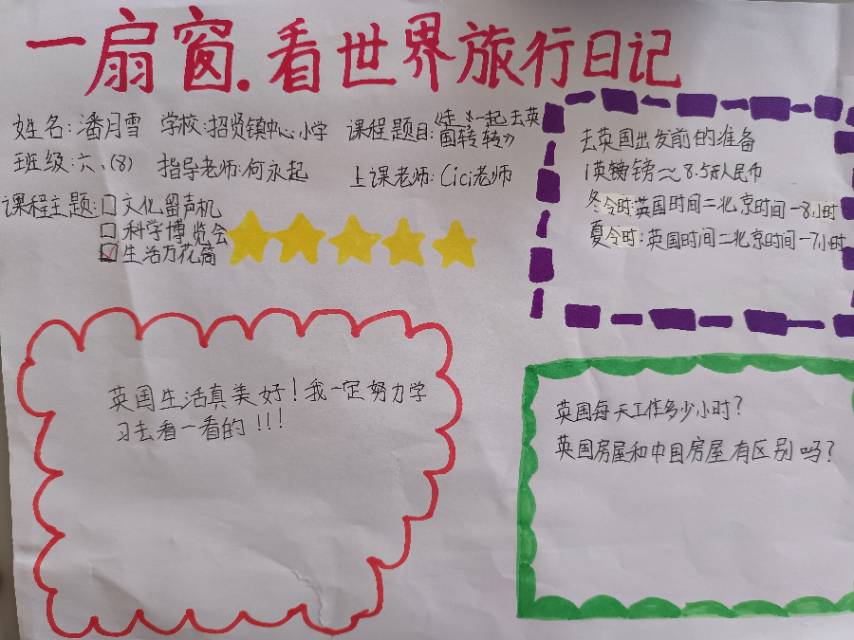 一扇窗.看世界旅行日记
姓名:潘月雪 学校:招贤镇中心小学 课程题目:《走,一起去英
国转转》
班级:六、(8) 指导老师:何永起 上课老师:Cici老师
课程主题:□文化留声机
□科学博览会
☑生活万花筒
去英国出发前的准备
1英镑≈8.5元人民币
冬令时:英国时间=北京时间-8小时
夏令时:英国时间=北京时间-7小时
英国生活真美好!我一定努力学
习去看一看的!!!
英国每天工作多少小时?
英国房屋和中国房屋有区别吗?